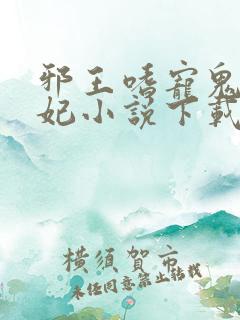 邪王嗜寵鬼
妃小説下載
橫須賀市
未經同意禁止轉載